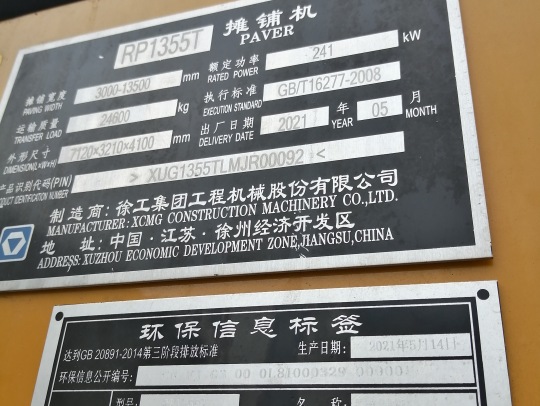 RP1355T 摊铺机
PAVER
摊铺宽度 3000-13500 mm 额定功率 241 kW
PAVING WIDTH RATED POWER
运输质量 24600 kg 执行标准 GB/T16277-2008
TRANSFER LOAD EXECUTION STANDARD
外形尺寸 7120×3210×4100 mm 出厂日期 2021 年 05 月
DIMENSION(L×W×H) DELIVERY DATE YEAR MONTH
产品识别代码(PIN) > XUG1355TLMJR00092 <
PRODUCT IDENTIFICATION NUMBER
制造商:徐工集团工程机械股份有限公司
MANUFACTURER: XCMG CONSTRUCTION MACHINERY CO.,LTD.
地址:中国·江苏·徐州经济开发区
ADDRESS: XUZHOU ECONOMIC DEVELOPMENT ZONE,JIANGSU,CHINA
环保信息标签
达到GB 20891-2014第三阶段排放标准 生产日期: 2021年5月14日
环保信息公开编号:
型号: 名称: